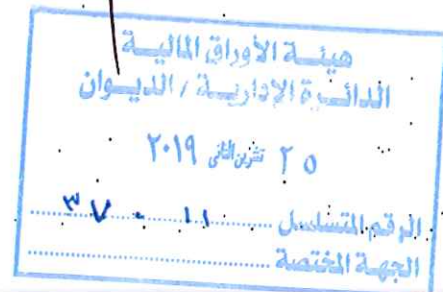 هيئـة الأوراق الماليـة
الدائـرة الإداريـة / الديـوان
٢٥ تشرين الثاني ٢٠١٩
الرقم المتسلسل ١١٠٣٧
الجهة المختصة